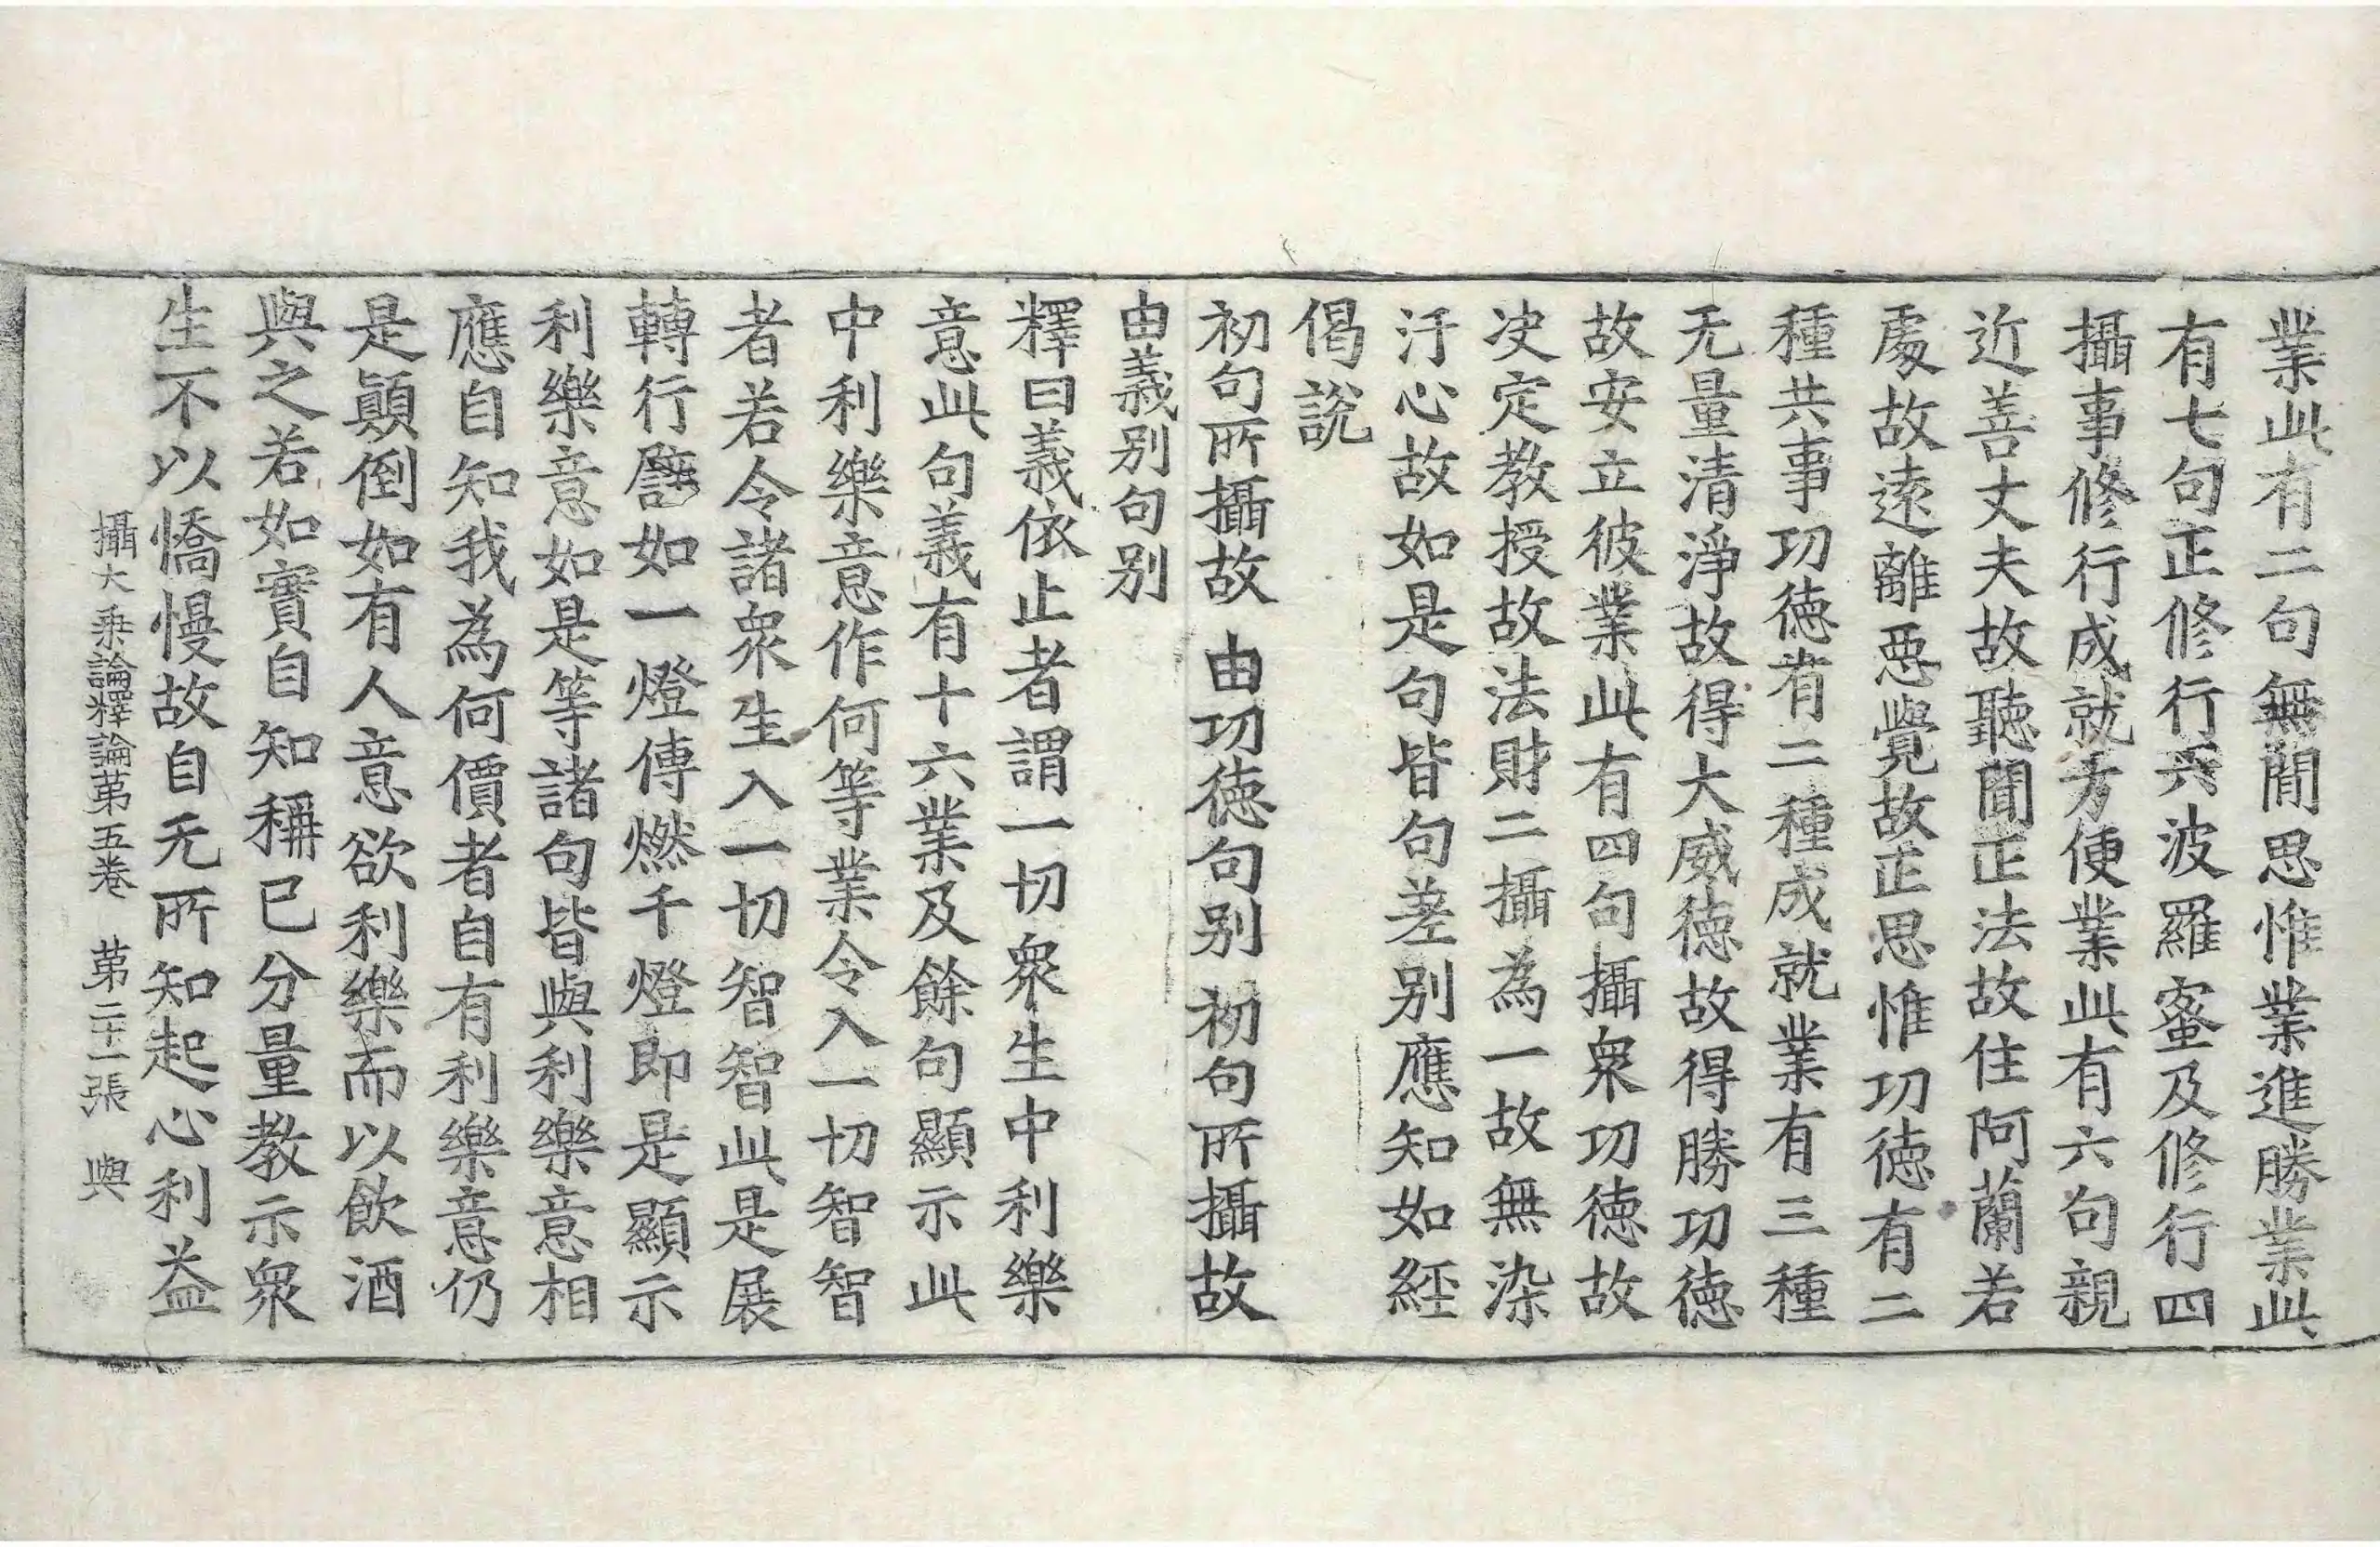 業此有二句無間思惟業進勝業此
有七句正修行六波羅蜜及修行四
攝事修行成就方便業此有六句親
近善丈夫故聽聞正法故住阿蘭若
處故遠離惡覺故正思惟功德有二
種共事功德有二種成就業有三種
无量清淨故得大威德故得勝功德
故安立彼業此有四句攝眾功德故
决定教授故法財二攝為一故無染
汙心故如是句皆句差別應知如經
偈說
初句所攝故 由功德句別 初句所攝故
由義別句別
釋曰義依止者謂一切眾生中利樂
意此句義有十六業及餘句顯示此
中利樂意作何等業令入一切智智
者若令諸眾生入一切智智此是展
轉行譬如一燈傳燃千燈即是顯示
利樂意如是等諸句皆與利樂意相
應自知我為何價者自有利樂意仍
是顛倒如有人意欲利樂而以飲酒
與之若如實自知稱已分量教示眾
生不以憍慢故自无所知起心利益
攝大乘論釋論第五卷 第二十一張 與